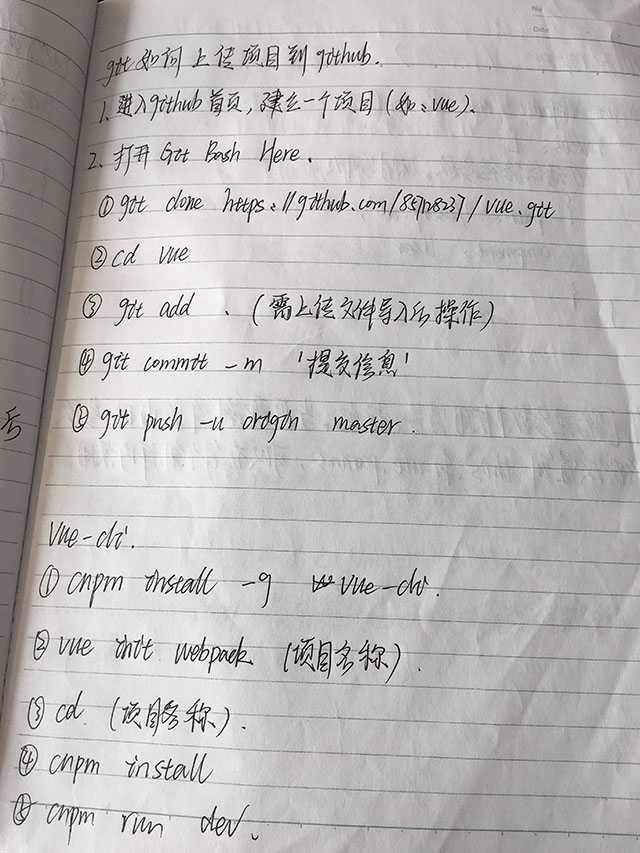 git如何上传项目到github.
1. 进入github首页,建立一个项目(如:vue).
2. 打开Git Bash Here.
① git clone https://github.com/857128237/vue.git
② cd vue
③ git add . (需上传文件导入后操作)
④ git commit -m '提交信息'
⑤ git push -u origin master.
后
vue-cli.
① cnpm install -g vue-cli.
② vue init webpack (项目名称).
③ cd (项目名称).
④ cnpm install
⑤ cnpm run dev.